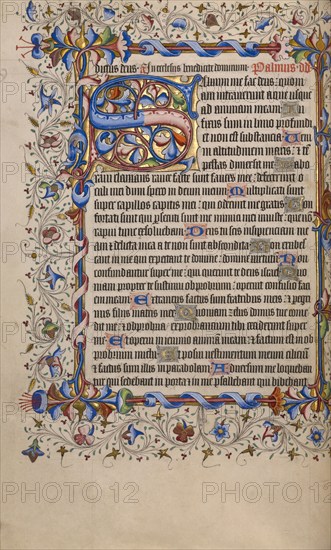 dictus deus. In ecclesiis benedicite dominum. Psalmus dd
Salvum me fac deus: quoni
am intraverunt aque usque
ad animam meam. In
fixus sum in limo profundi
et non est substancia. Veni
in altitudinem maris: et te
pestas dimersit me. Labo
ravi clamans rauce facte sunt fauces mee: defecerunt o
culi mei dum spero in deum meum. Multiplicati sunt
super capillos capitis mei: qui oderunt me gratis. Con
fortati sunt qui persecuti sunt me inimici mei iniuste: que no
rapui tunc exsolvebam. Deus tu scis insipienciam me
am et delicta mea a te non sunt abscondita. Non erubes
cant in me qui expectant te domine: domine virtutum. Non
confundantur super me: qui querunt te deus israel. Quo
niam propter te sustinui obprobrium: operuit confusio faci
em meam. Extraneus factus sum fratribus meis: et pegri
nus filiis matris mee. Quoniam zelus domus tue come
dit me: et obprobria exprobrantium tibi ceciderunt super
me. Et operui in ieiunio animam meam: et factum est in ob
probrium michi. Et posui vestimentum meum cilicium
et factus sum illis in parabolam. Adversum me loquebant
qui sedebant in porta: et in me psallebant qui bibebant
PHOTO 12